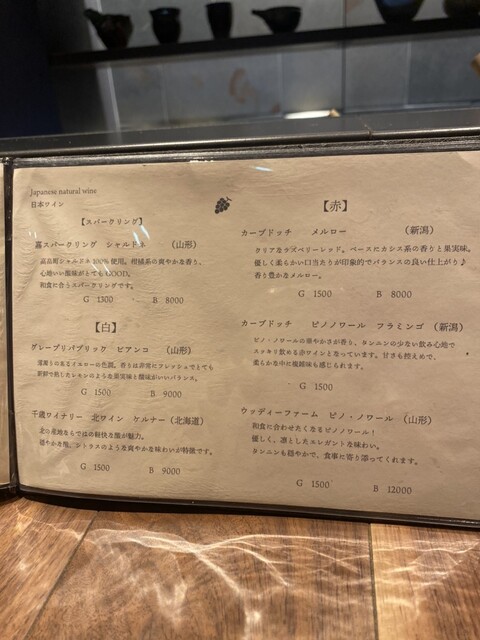 Japanese natural wine
日本ワイン
【スパークリング】
嘉スパークリング シャルドネ （山形）
高畠町シャルドネ100%使用。柑橘系の爽やかな香り、
心地いい酸味がとてもGOOD。
和食に合うスパークリングです。
G 1300 B 8000
【白】
グレープリパブリック ビアンコ （山形）
香りは非常にフレッシュでとても
新鮮で熟したレモンのような果実味と酸味がいいバランス。
G 1500 B 9000
千歳ワイナリー 北ワイン ケルナー（北海道）
北の産地ならではの軽快な酸が魅力。
穏やかな酸、シトラスのような爽やかな味わいが特徴です。
G 1500 B 9000
【赤】
カーブドッチ メルロー （新潟）
クリアなラズベリーレッド。ベースにカシス系の香りと果実味。
優しく柔らかい口当たりが印象的でバランスの良い仕上がり♪
香り豊かなメルロー。
G 1500 B 8000
カーブドッチ ピノノワール フラミンゴ （新潟）
ピノ・ノワールの華やかさが香り、タンニンの少ない飲み心地で
スッキリ飲める赤ワインとなっています。甘さも控えめで、
柔らかな中に複雑味も感じられます。
G 1500
ウッディーファーム ピノ・ノワール （山形）
和食に合わせたくなるピノノワール！
優しく、凛としたエレガントな味わい。
タンニンも穏やかで、食事に寄り添ってくれます。
G 1500 B 12000